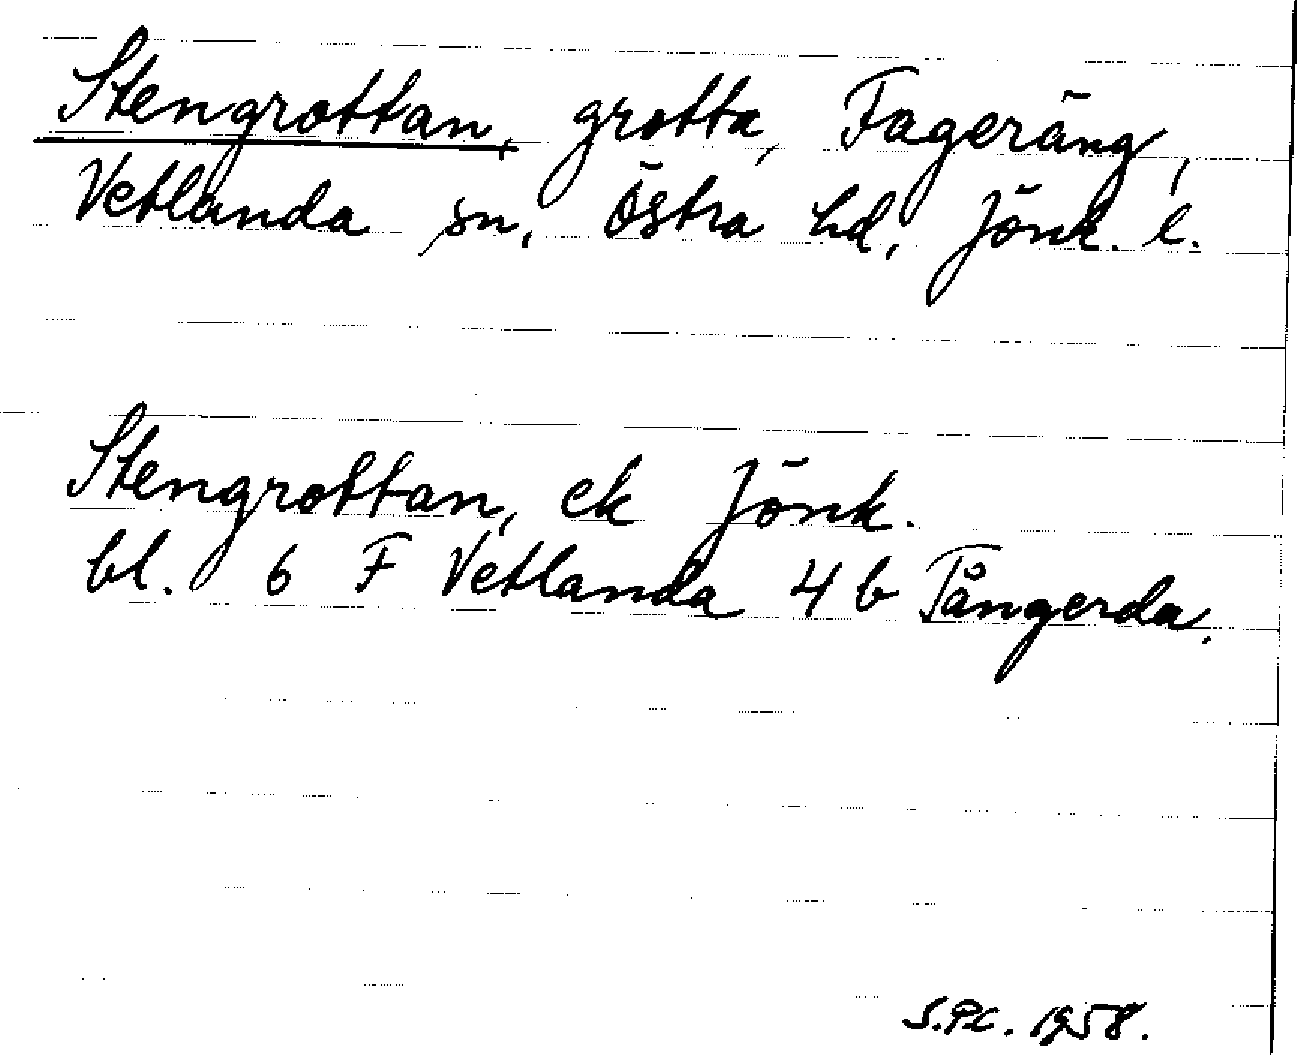 Stengrottan, grotta, Fageräng,
Vetlanda sn, Östra hd, Jönk. l.
Stengrottan, ek Jönk.
bl. 6 F Vetlanda 4 b Tångerda.
S.P.C. 1958.